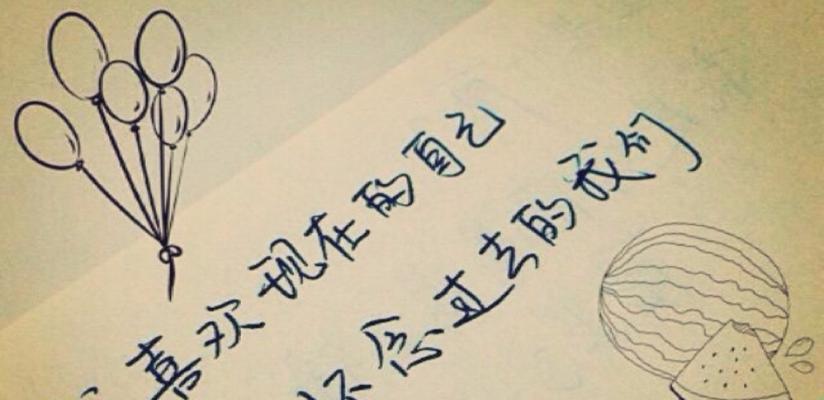 喜欢现在的自己
怀念过去的我们